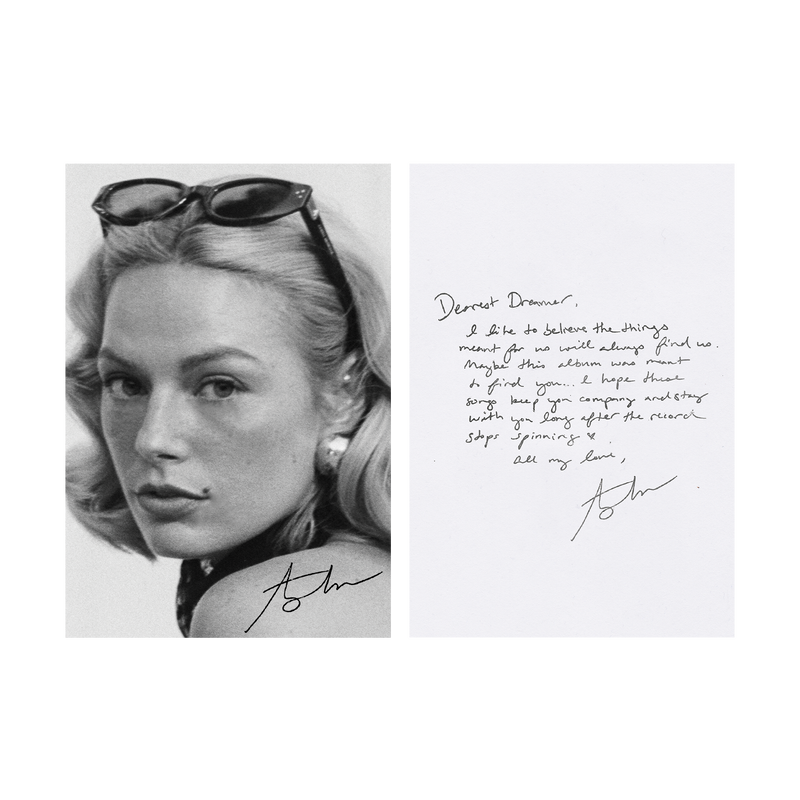 Dearest Dreamer,
I like to believe the things
meant for us will always find us.
Maybe this album was meant
to find you... I hope these
songs keep you company and stay
with you long after the record
stops spinning
all my love,